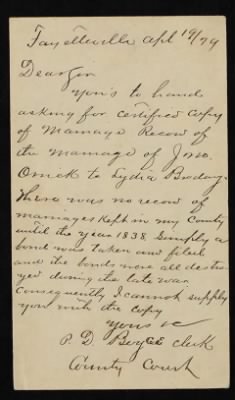 Fayetteville Apl 19/79
Dear Sir
Your's to hand
asking for certified copy
of Marriage Recow of
the marriage of Jno.
to Lydia
There was no recow of
marriages Kept in my County
until the year 1838. Simply a
bond was taken and filed
and the bonds were all destroy
yed during the late war
Consequently I cannot supply
you with the copy
yours &c
P. D. Boyce Clerk
County Court